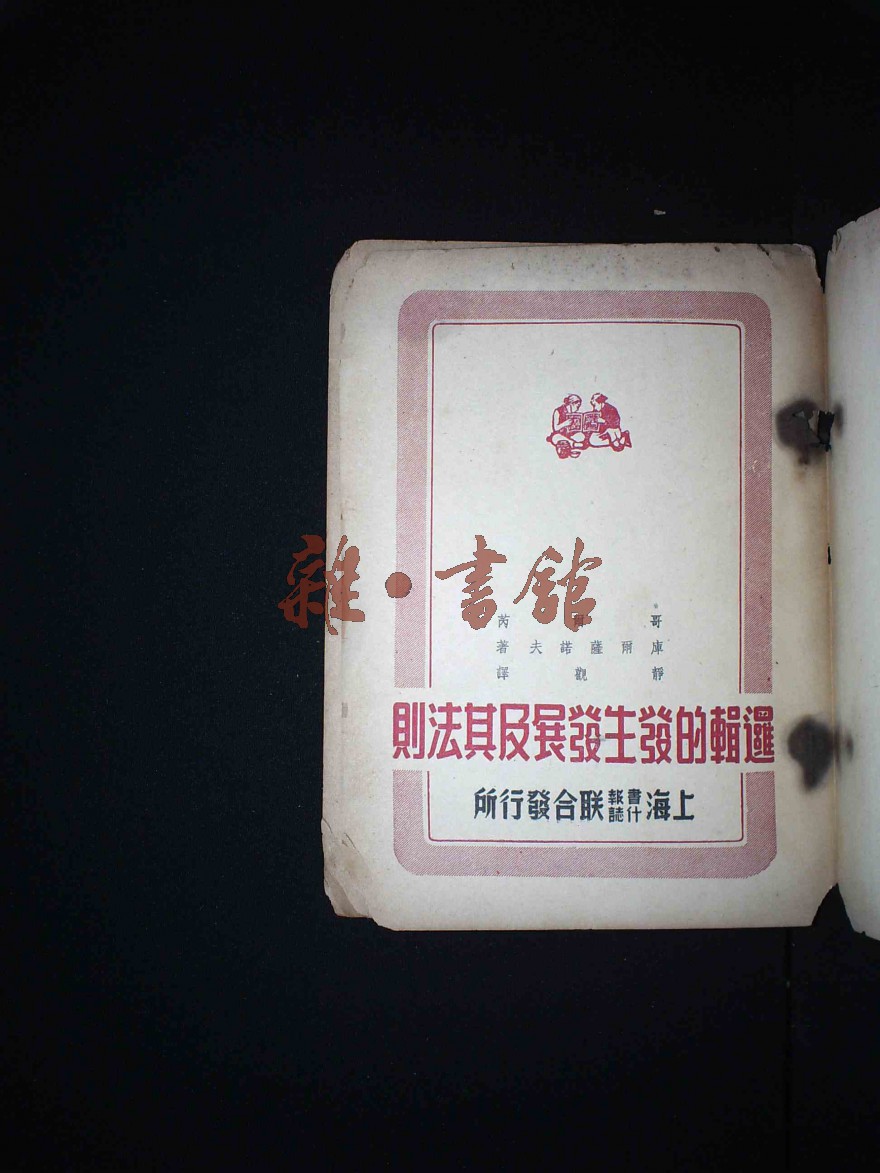 雜·書館
哥 芮
庫爾薩諾夫著
靜觀譯
邏輯的發生發展及其法則
上海書報什誌联合發行所